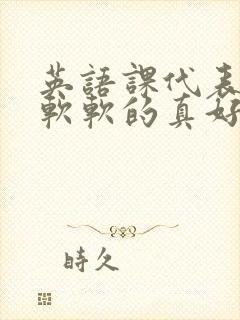 英語課代表
軟軟的真好
時久